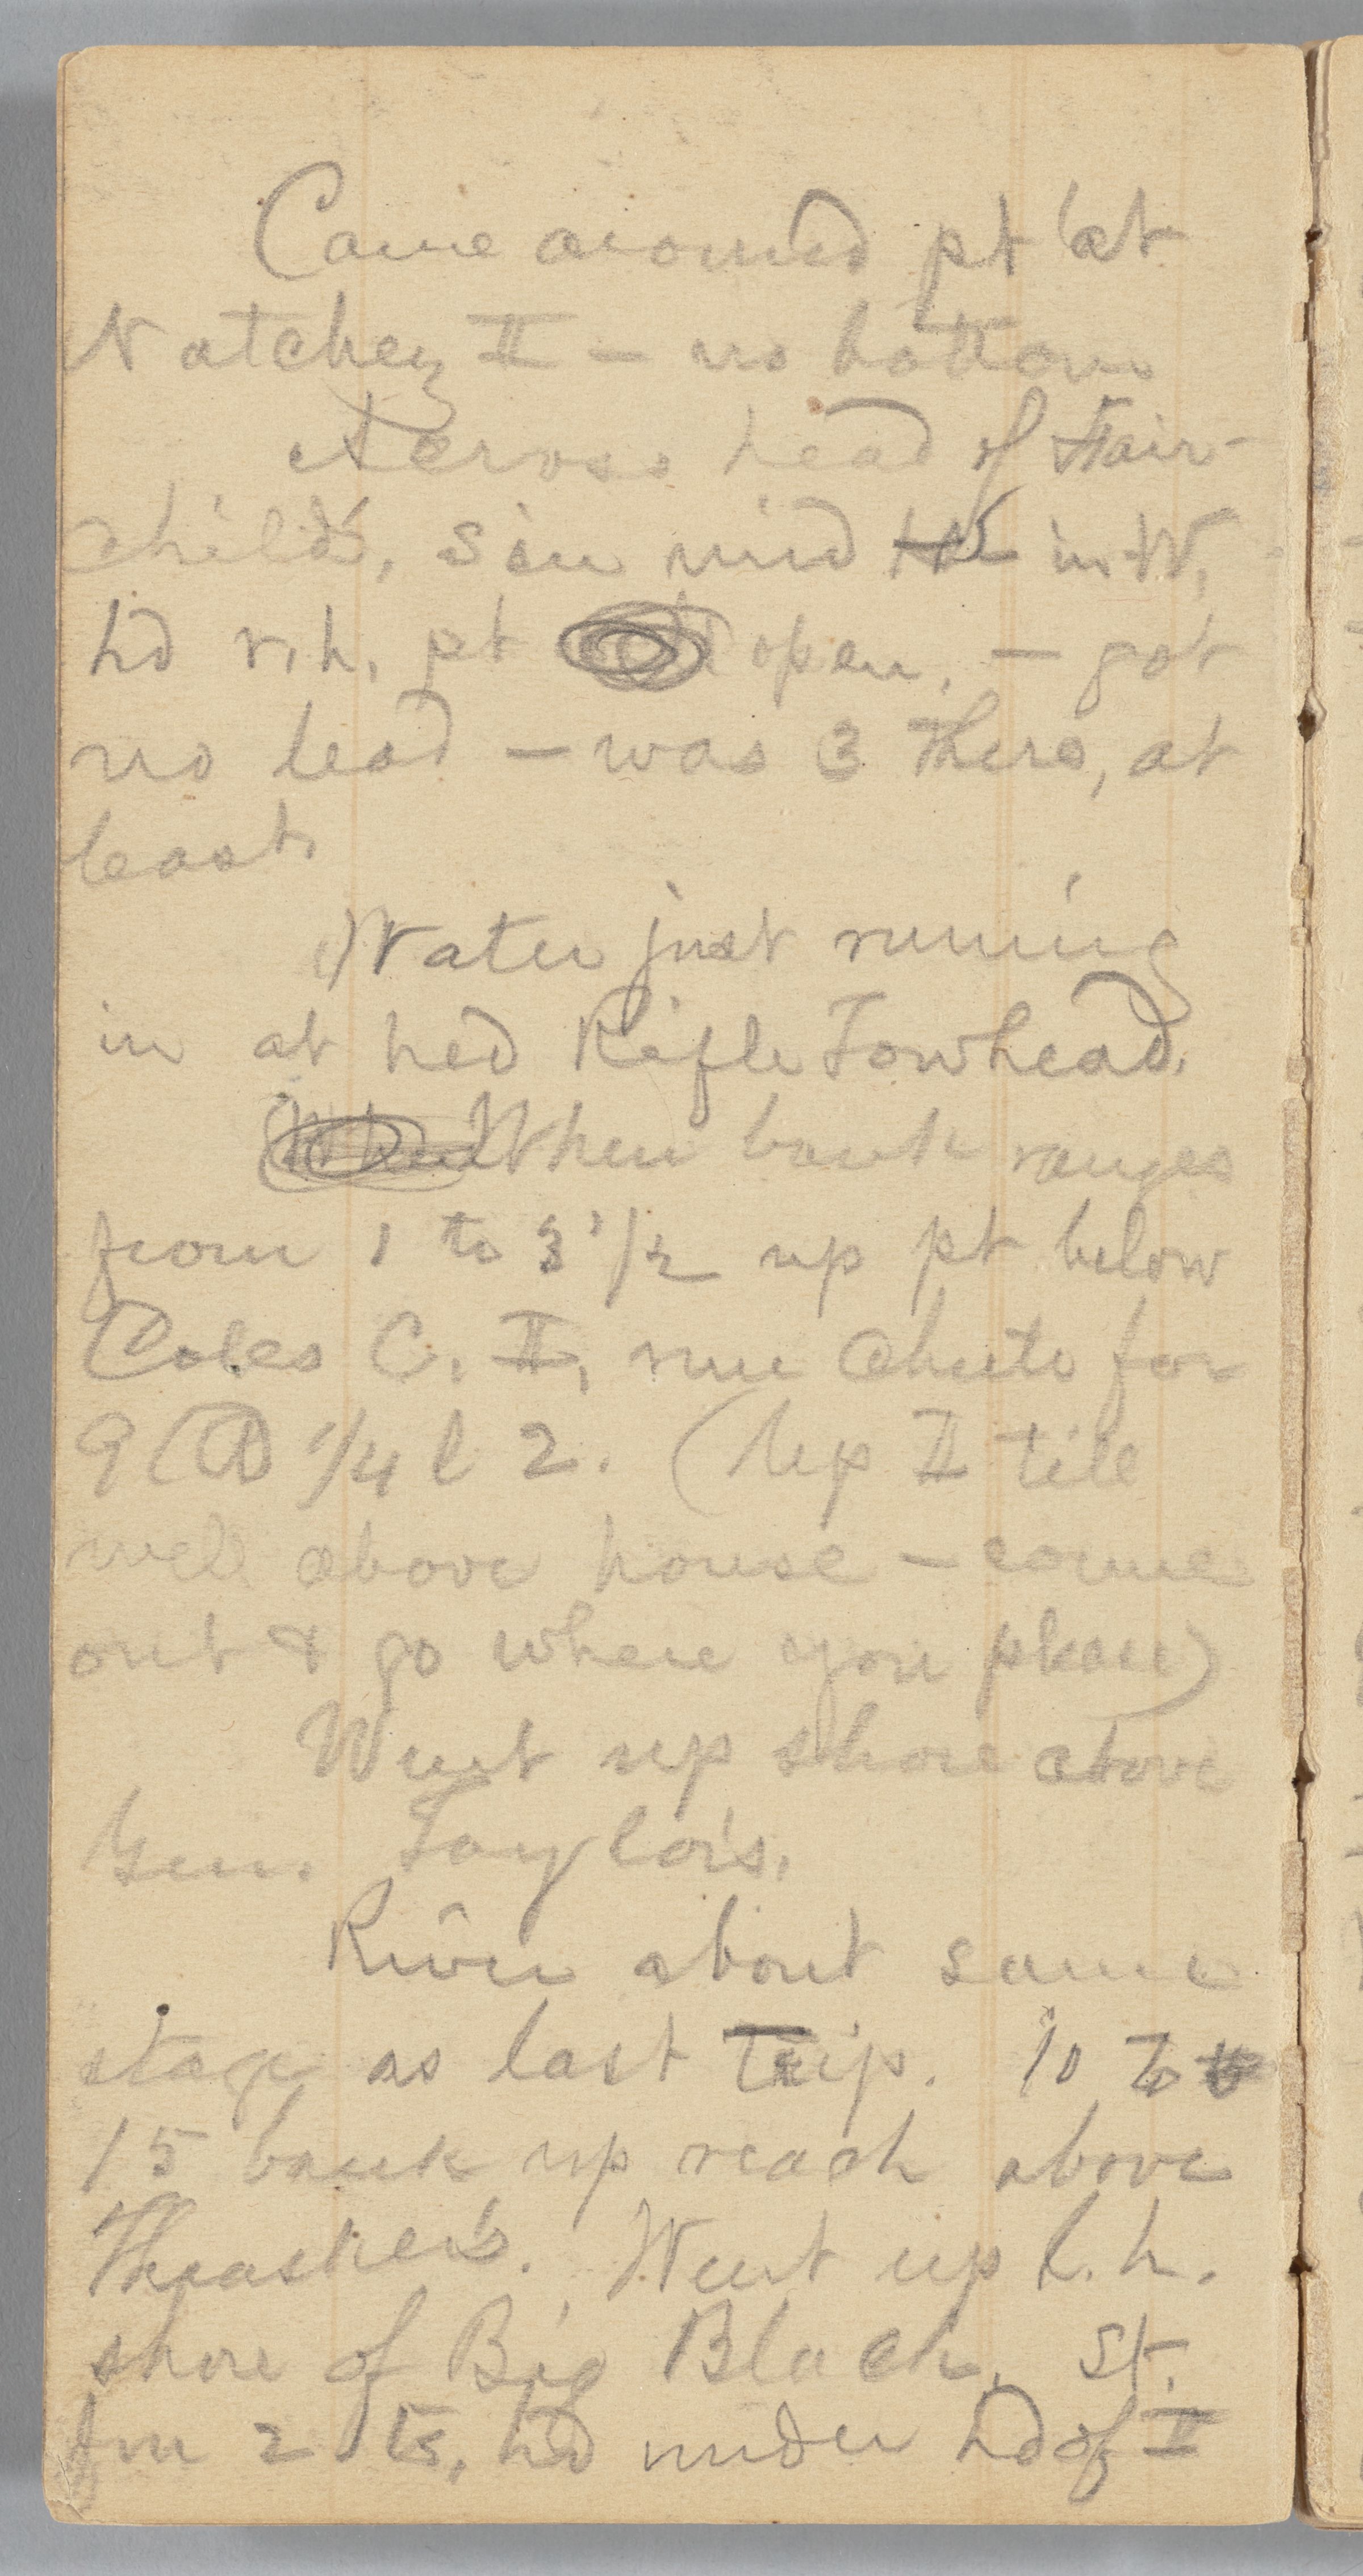 Came around pt at
Natchez II — no bottom
Across head of Fair-
child's, s in mid in W,
hd r. h. pt open, — got
no lead — was 3 there, at
least.
Water just running
in at hed Rifle Towhead.
When bank ranges
from 1 to 3 1/2 up pt below
Coles C. II, run chute for
9 1/4 l 2. (Up II till
well above house — come
out & go where you please)
Went up shore above
Gen. Taylor's.
River about same
stage as last trip. 10 to
15 bank up reach above
Thrasher's. Went up l. h.
shore of Big Black. St.
fm 2 ts, hd under hd of I